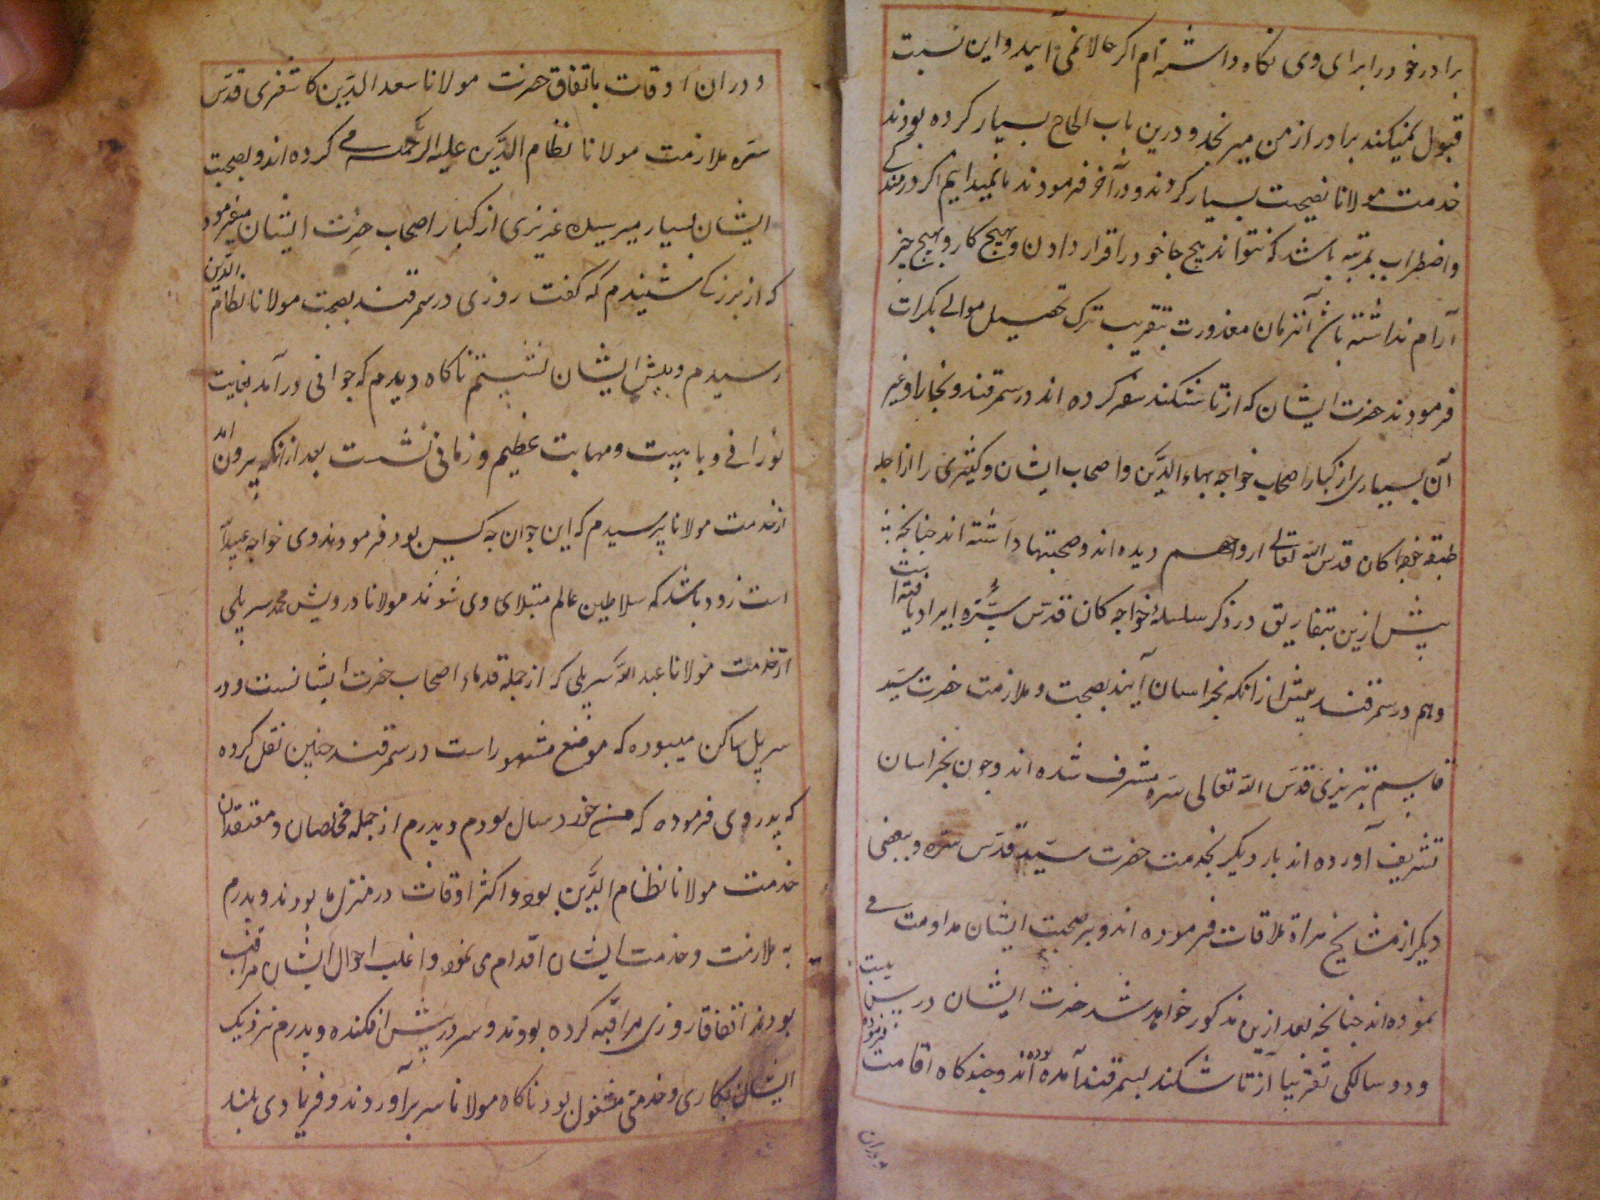 برادر خود را برای وی نگاه داشته‌ام اگر حالا نمی آید و این نسبت
قبول نمیکند برادر از من میرنجد و درین باب الحاح بسیار کرده بودند
خدمت مولانا نصیحت بسیار کردند و در آخر فرمودند ما نمیدانیم اگر دردمندی
و اضطراب بمرتبه باشد که نتواند هیچ جا خود را قرار دادن و بهیچ کار و بهیچ چیز
آرام نداشته باشد آنزمان معذورت بتقریب ترک تحصیل موالی بکرات
فرمودند حضرت ایشان که از تاشکند سفر کرده اند در سمرقند و بخارا و غیر
آن بسیاری از کبار اصحاب خواجه بهاء الدین و اصحاب ایشان و کثیری را از اجله
طبقه خواجکان قدس الله تعالی ارواحهم دیده اند و صحبتها داشته اند چنانچه
پیش ازین بتفاریق در ذکر سلسله خواجه کان قدس سره ایراد یافته است
و هم در سمرقند پیش از انکه بخراسان آیند بصحبت و ملازمت حضرت سید
قاسم تبریزی قدس الله تعالی سره مشرف شده اند و چون بخراسان
تشریف آورده اند بار دیکر بخدمت حضرت سید قدس سره و ببعضی
دیکر از مشایخ هراة ملاقات فرموده اند و بر صحبت ایشان مداومت می
نموده اند چنانچه بعد ازین مذکور خواهد شد حضرت ایشان در سن بیست
و دو سالکی تقریبا از تاشکند بسمرقند آمده بوده اند و چندکاه اقامت فرموده
و دران
و دران اوقات باتفاق حضرت مولانا سعد الدین کاشغری قدس
سره ملازمت مولانا نظام الدین علیه الرحمه می کرده اند و بصحبت
ایشان بسیار میرسیده عزیزی از کبار اصحاب حضرت ایشان میفرمود
که از بزرگی شنیدم که گفت روزی در سمرقند بصحبت مولانا نظام الدین
رسیدم و پیش ایشان نشستم ناکاه دیدم که جوانی در آمد بغایت
نورانی و با هیبت و مهابت عظیم و زمانی نشست بعد از انکه بیرون آمد
از خدمت مولانا پرسیدم که این جوان چه کس بود فرمودند وی خواجه عبید الله
است زود باشد که سلاطین عالم مبتلای وی شوند مولانا درویش محمد سرپلی
از خدمت مولانا عبد الله سرپلی که از جمله قدماء اصحاب حضرت ایشانست و در
سرپل ساکن میبوده که موضع مشهور است در سمرقند چنین نقل کرده
که پدر وی فرموده که من خورد سال بودم و پدرم از جمله مخلصان و معتقدان
خدمت مولانا نظام الدین بود و اکثر اوقات در منزل ما بودند و پدرم
به ملازمت و خدمت ایشان اقدام می نمود و اغلب احوال ایشان مراقب
بودند اتفاقا روزی مراقبه کرده بودند و سر در پیش افکنده و پدرم نزدیک
ایشان بکاری و خدمتی مشغول بود ناکاه مولانا سر برآوردند و فریادی بلند